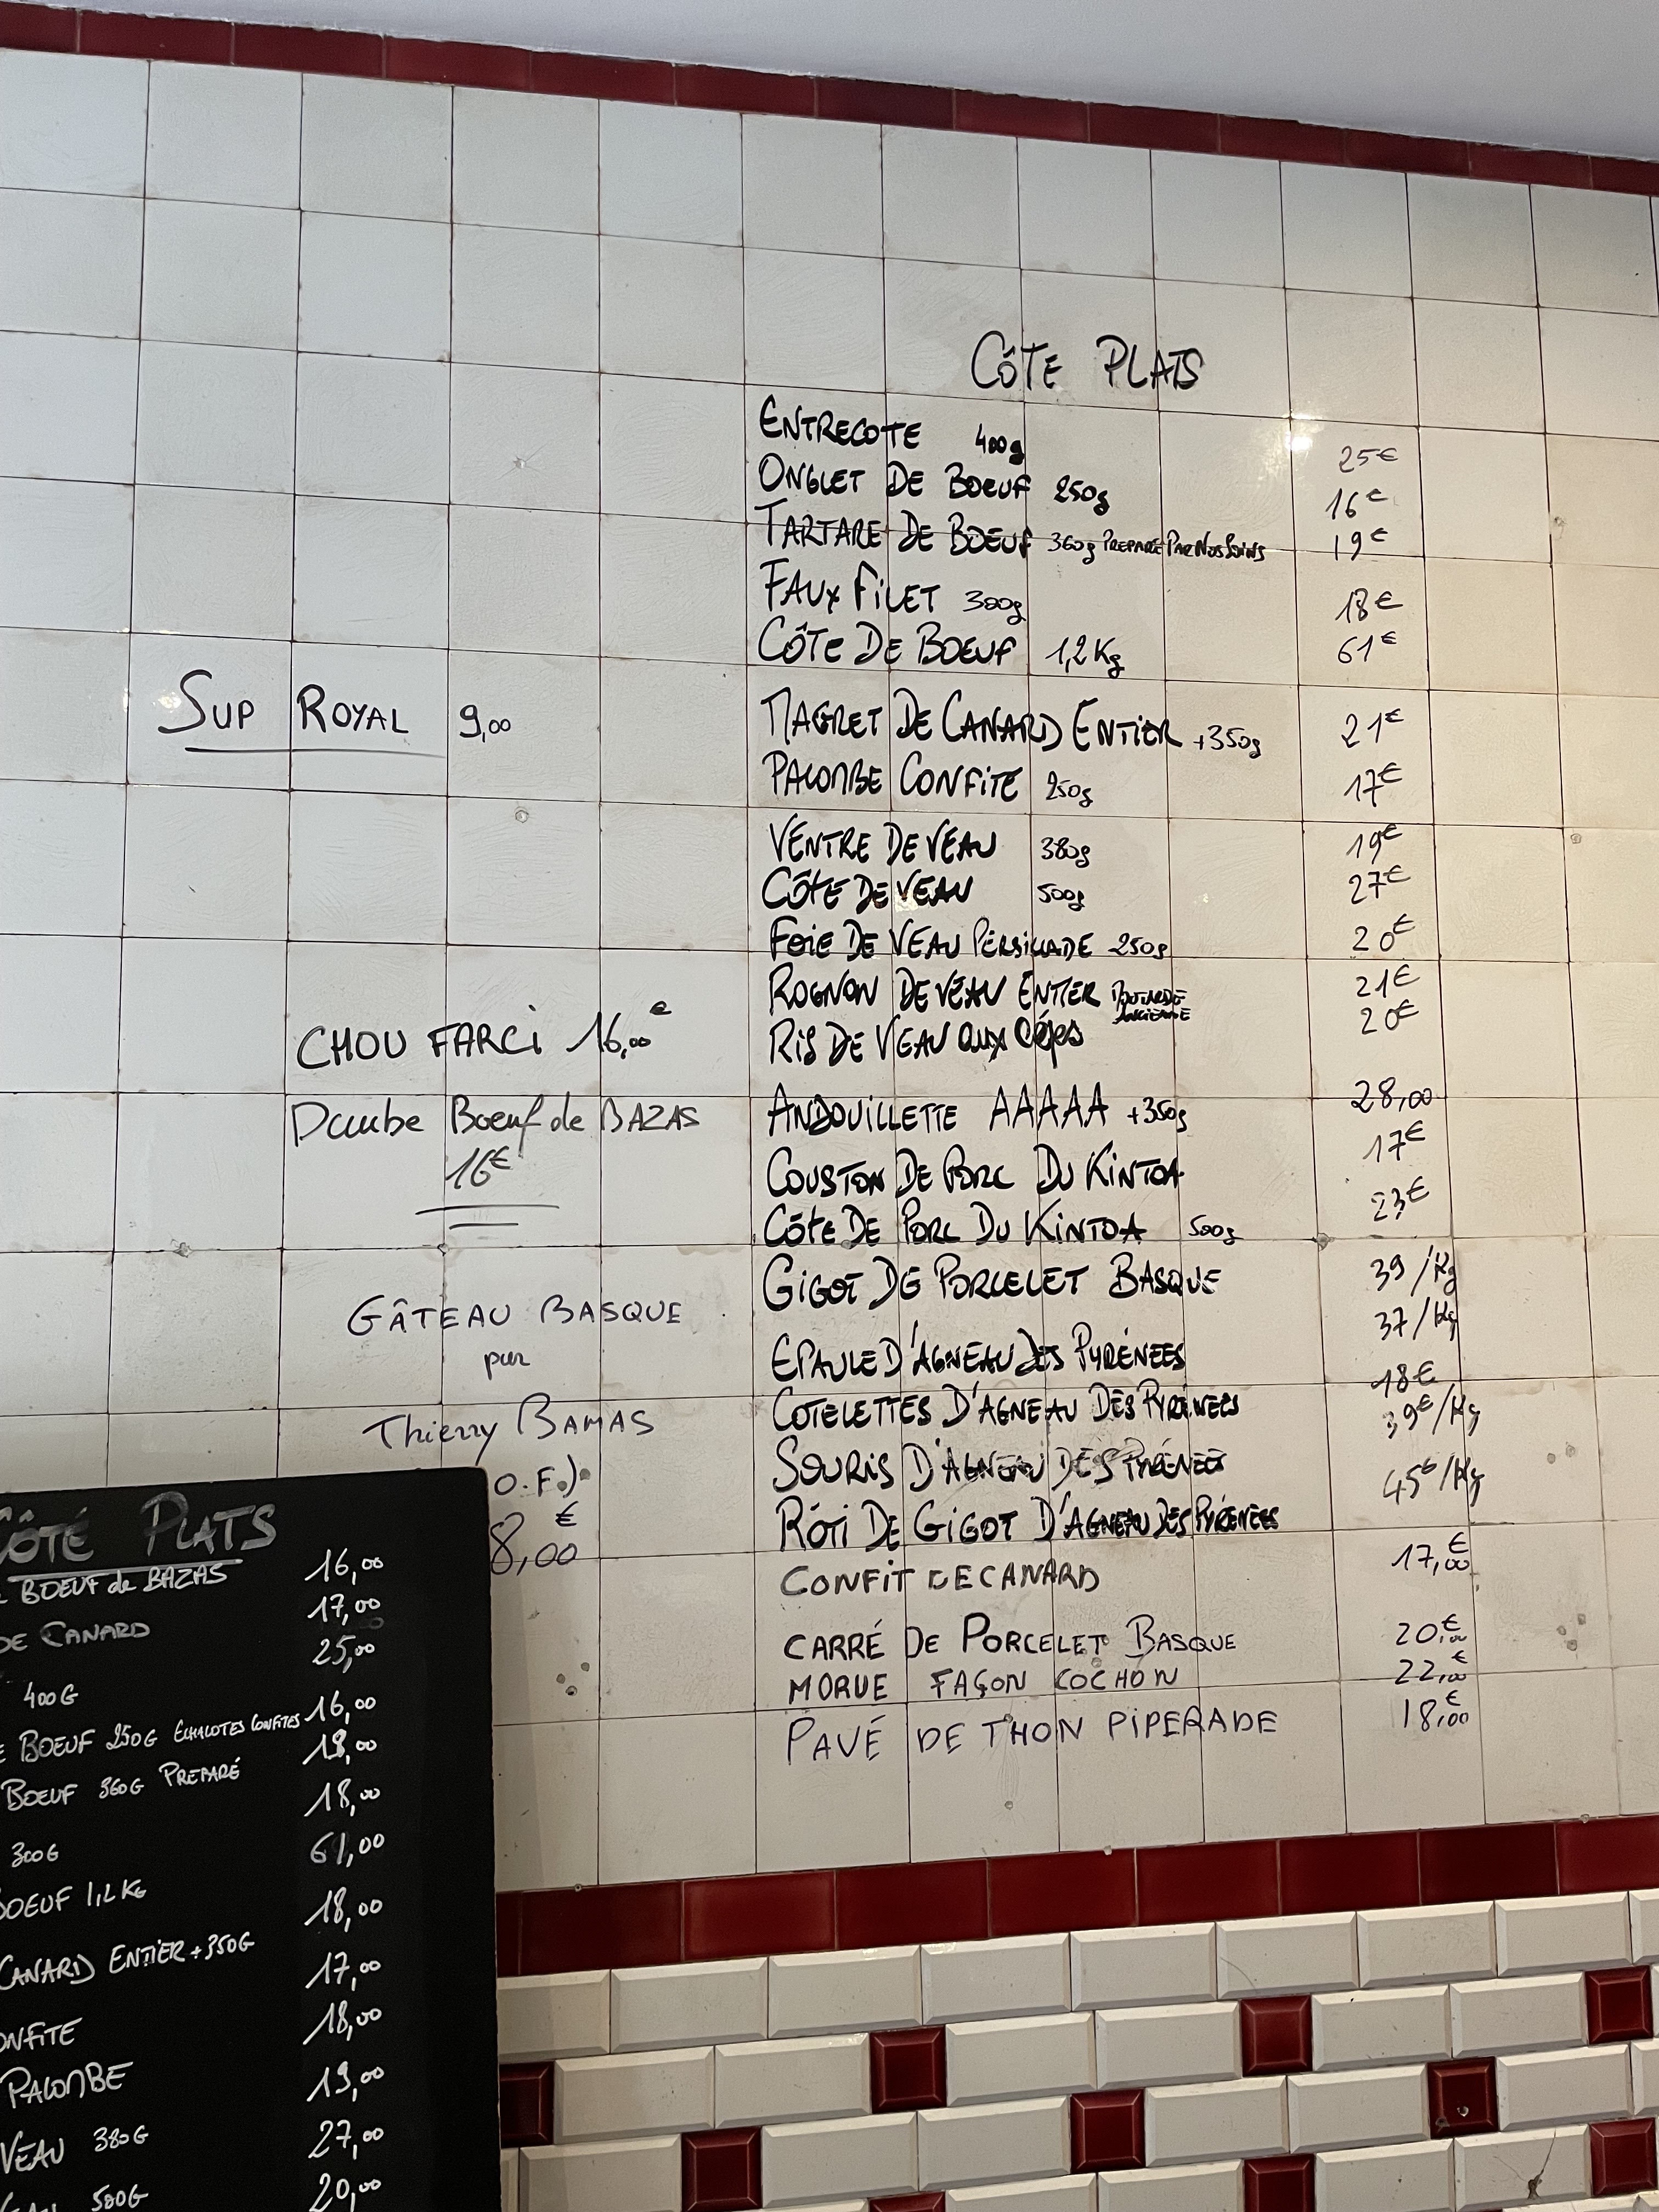 CÔTE PLATS
ENTRECOTE 400g 25€
ONGLET DE BOEUF 250g 16€
TARTARE DE BOEUF 360g PREPARÉ PAR NOS SOINS 19€
FAUX FILET 300g 18€
CÔTE DE BOEUF 1,2Kg 61€
MAGRET DE CANARD ENTIER +350g 21€
PALOMBE CONFITE 250g 17€
VENTRE DE VEAU 380g 19€
CÔTE DE VEAU 500g 27€
FOIE DE VEAU PERSILLADE 250g 20€
ROGNON DE VEAU ENTIER MOUTARDE ANCIENNE 21€
RIS DE VEAU aux Cépes
20€
ANDOUILLETTE AAAAA +350g
28,00
COUSTON DE PORC DU KINTOA
17€
CÔTE DE PORC DU KINTOA 500g
23€
GIGOT DE PORCELET BASQUE
39/Kg
EPAULE D'AGNEAU DES PYRÉNÉES
37/Kg
COTELETTES D'AGNEAU DES PYRÉNÉES
18€
SOURIS D'AGNEAU DES PYRÉNÉES
39€/Kg
RÔTI DE GIGOT D'AGNEAU DES PYRENEES
45€/Kg
CONFIT DE CANARD 17,00€
CARRÉ DE PORCELET BASQUE 20,00€
MORUE FAÇON COCHON 22,00€
PAVÉ DE THON PIPERADE 18,00€
SUP ROYAL 9,00
CHOU FARCI 16,00€
Daube Boeuf de BAZAS
16€
GÂTEAU BASQUE
par
Thierry BAMAS
O.F.)
8,00€
CÔTÉ PLATS
BOEUF de BAZAS 16,00
DE CANARD 17,00
400G 25,00
BOEUF 250G ECHALOTES CONFITES 16,00
BOEUF 360G PREPARÉ 19,00
300G 18,00
BOEUF 1,2KG 61,00
CANARD ENTIER +350G 18,00
ONFITE 17,00
PALOMBE 18,00
VEAU 380G 19,00
500G 27,00
20,00